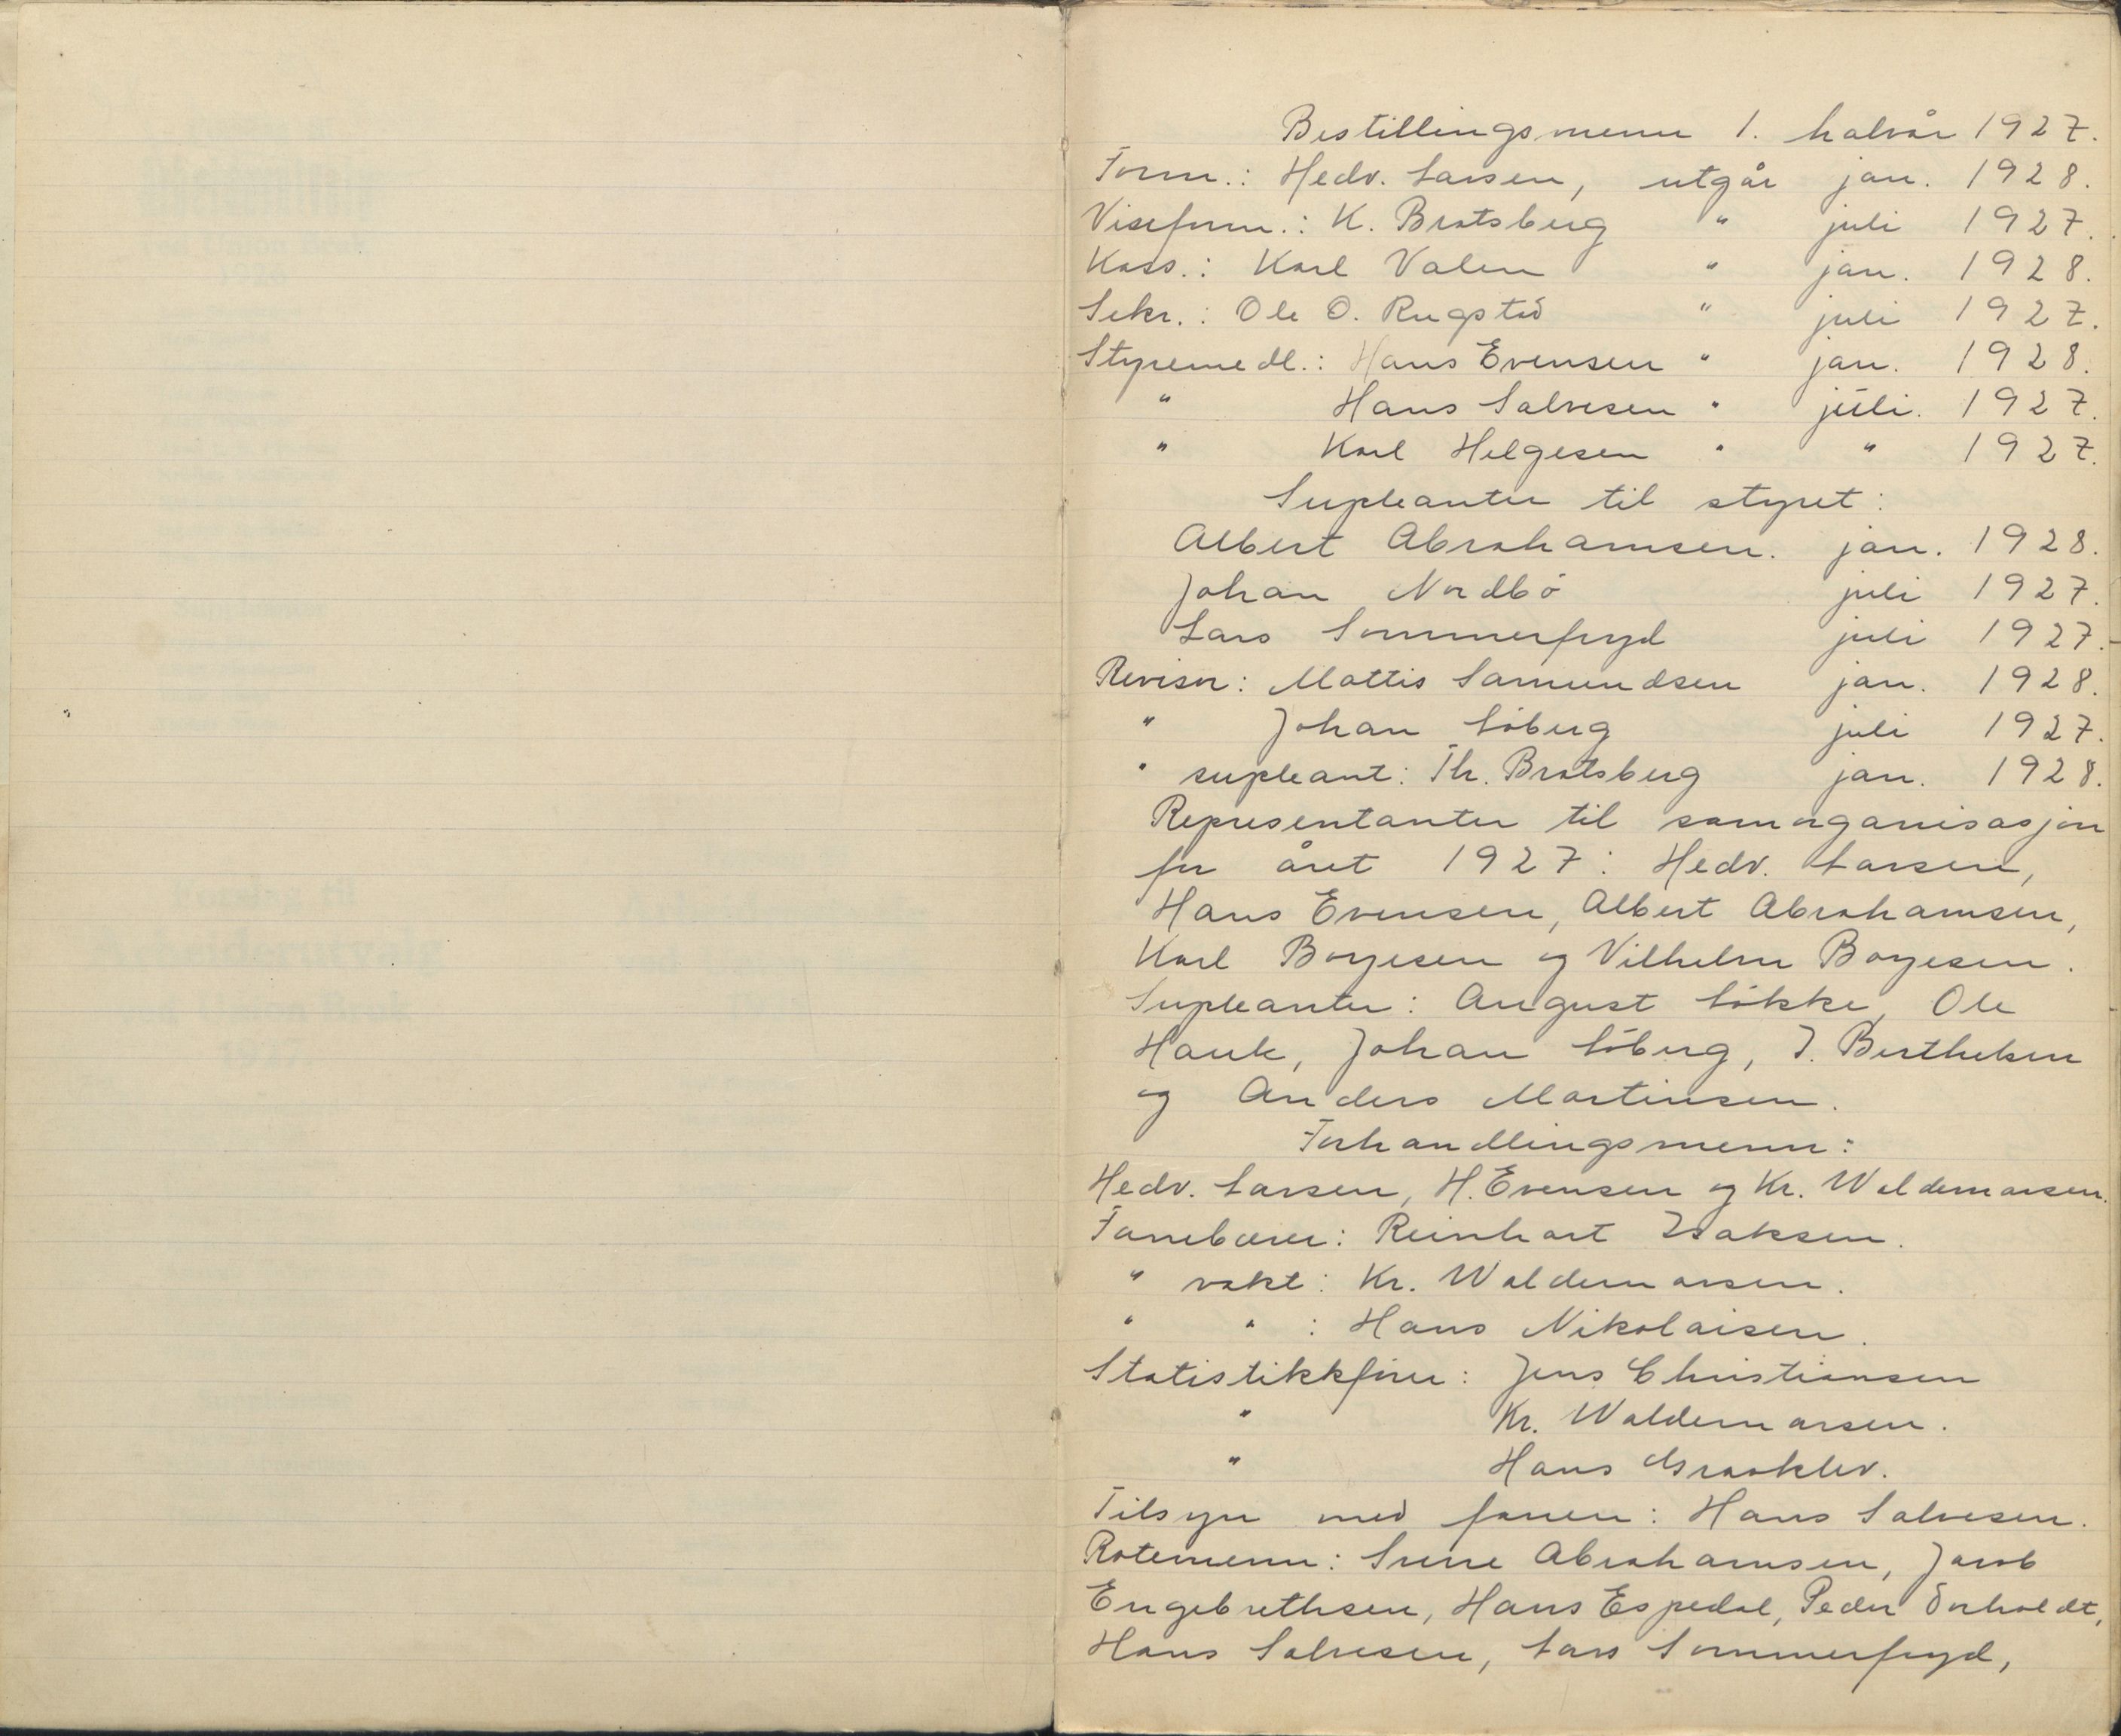 Bestillingsmenn 1. halvår 1927.
Form.: Hedv. Larsen, utgår jan. 1928.
Viseform.: K. Bratsberg " juli 1927.
Kass.: Karl Valen " jan. 1928.
Sekr.: Ole O. Rugstad " juli 1927.
Styremedl.: Hans Evensen " jan. 1928.
" Hans Salvesen " juli. 1927.
" Karl Helgesen " " 1927.
Supleanter til styret:
Albert Abrahamsen. jan. 1928.
Johan Nordbö juli 1927.
Lars Sommerfryd juli 1927.
Revisor: Mattis Samundsen jan. 1928.
" Johan Löberg juli 1927.
" supleant: Th. Bratsberg jan. 1928.
Representanter til samorganisasjon
for året 1927: Hedv. Larsen,
Hans Evensen, Albert Abrahamsen,
Karl Boyesen og Vilhelm Boyesen.
Supleanter: August Lökke, Ole
Hauk, Johan Löberg, J. Berthelsen
og Anders Martinsen.
Forhandlingsmenn:
Hedv. Larsen, H. Evensen og Kr. Waldemarsen.
Fanebærer: Reinhart Isaksen.
" vakt: Kr. Waldemarsen.
" " : Hans Nikolaisen.
Statistikkfører: Jens Christiansen
" Kr. Waldemarsen.
" Hans Graaklev.
Tilsyn med fanen: Hans Salvesen.
Rotemenn: Sverre Abrahamsen, Jacob
Engebrethsen, Hans Espedal, Peder
Hans Salvesen, Lars Sommerfryd,